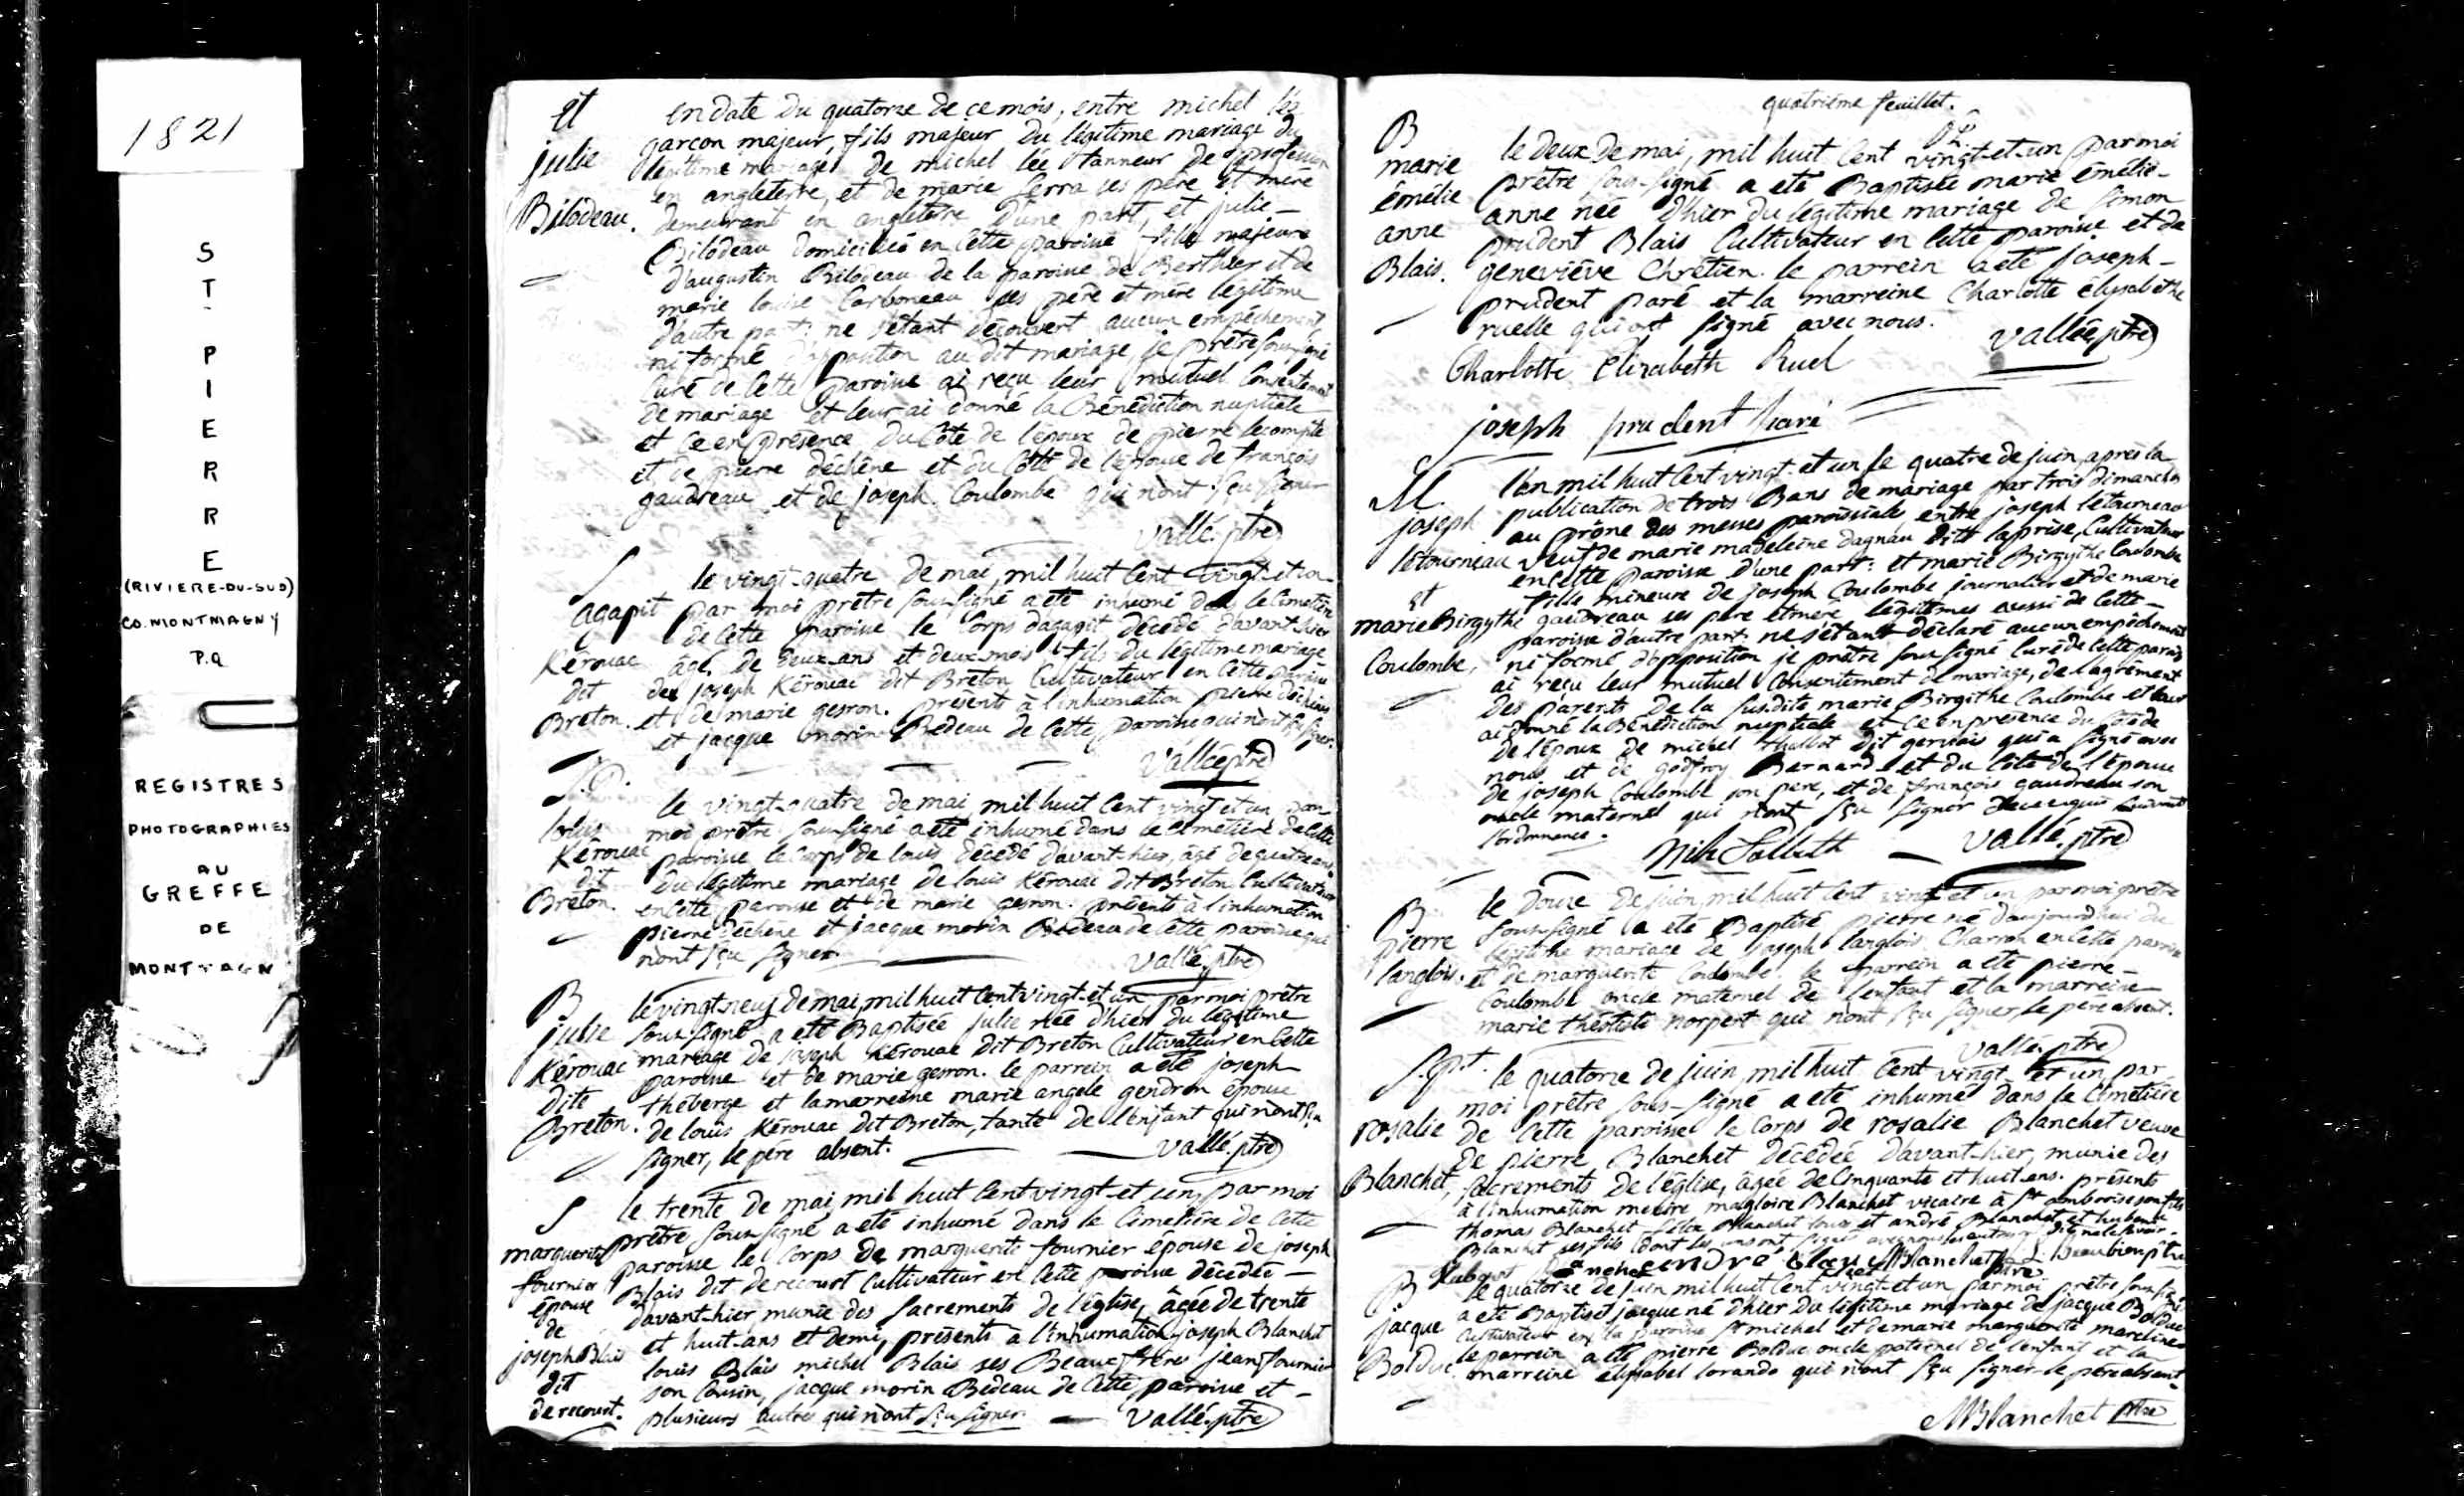 1821
ST PIERRE
(RIVIERE-DU-SUD)
CO. MONTMAGNY
P.Q
REGISTRES
PHOTOGRAPHIES
AU
GREFFE
DE
MONTMAGN
et
julie
Bilodeau.
en date du quatorze de ce mois, entre michel lée
garcon majeur, fils majeur du légitime mariage du
légitime mariage de michel lée tanneur de profession
en angleterre, et de marie serra ses père et mère
demeurant en angleterre d'une part, et julie -
Bilodeau domiciliée en cette paroisse fille majeure
d'augustin Bilodeau de la paroisse de Berthier et de
marie louise Carboneau ses père et mère légitime
d'autre part: ne s'étant découvert aucun empêchement
ni formé d'opposition au dit mariage je prêtre soussigné
Curé de Cette paroisse ai reçu leur mutuel Consentement
de mariage et leur ai donné la Bénédiction nuptiale
et ce en présence du Côté de l'époux de pierre lecompte
et de pierre déchêne et du Côté de l'épouse de françois
gaudreau et de joseph Coulombe qui n'ont sçu signer
vallé. ptre
S
agapit
Kérouac
dit
Breton.
le vingt-quatre de mai, mil huit Cent vingt-et-un
par moi prêtre sous-signé a été inhumé dans le Cimetière
de Cette paroisse le Corps d'agapit décédé d'avant-hier
âgé de deux-ans et deux-mois fils du légitime mariage
de joseph Kérouac dit Breton Cultivateur en Cette paroisse
et de marie gesron. présents à l'inhumation pierre déchêne
et jacque morin Bedeau de Cette paroisse qui n'ont sçu signer.
Vallée ptre
louis
Kérouac
dit
Breton.
le vingt-quatre de mai mil huit Cent vingt et un par
moi prêtre sous-signé a été inhumé dans le Cimetière de Cette
paroisse le Corps de louis décédé d'avant-hier, âgé de quatre ans
du légitime mariage de louis Kérouac dit Breton Cultivateur
en Cette paroisse et de marie gesron. présents à l'inhumation
pierre déchêne et jacque morin Bedeau de Cette paroisse qui
n'ont sçu signer
vallé. ptre
B
julie
Kérouac
dite
Breton.
le vingt-neuf de mai, mil huit Cent vingt-et-un par moi prêtre
sous-signé a été Baptisée julie née d'hier du légitime
mariage de joseph Kérouac dit Breton Cultivateur en Cette
paroisse et de marie gesron. le parrein a été joseph
théberge et la marreine marie angele gendron épouse
de louis Kérouac dit Breton, tante de l'enfant qui n'ont sçu
signer, le père absent.
vallé. ptre
S
marguerite
fournier
épouse
de
joseph Blais
dit
derecourt.
le trente de mai, mil huit Cent vingt-et-un, par moi
prêtre sous-signé a été inhumé dans le Cimetière de Cette
paroisse le Corps de marguerite fournier épouse de joseph
Blais dit derecourt Cultivateur en Cette paroisse décédée -
d'avant-hier munie des sacrements de l'église, âgée de trente
et huit-ans et demi, présents à l'inhumation joseph Blanchet
louis Blais michel Blais ses Beaux frères jean fournier
son Cousin, jacque morin Bedeau de Cette paroisse et -
plusieurs autres qui n'ont sçu signer. Vallé. ptre
quatrième feuillet.
B
marie
émélie
anne
Blais.
le deux de mai, mil huit Cent vingt-et-un par moi
prêtre sous-signé a été Baptisée marie émélie -
anne née d'hier du légitime mariage de simon
prudent Blais Cultivateur en Cette paroisse et de
geneviève Chrétien. le parrein a été joseph -
prudent paré et la marreine Charlotte élysabethe
ruelle qui ont signé avec nous. vallée, ptre
Charlotte Elizabeth Ruel
joseph prudent paré
M.
joseph
létourneau
et
marie Birgythe
Coulombe,
l'an mil huit Cent vingt-et un le quatre de juin, après la
publication de trois Bans de mariage par trois dimanches
au prône des messes paroissiales entre joseph letourneau
veuf de marie madeleine dagnau ditt laprise, Cultivateur
en Cette paroisse d'une part: et marie Birgythe Coulombe
fille mineure de joseph Coulombe journalier et de marie
gaudreau ses père et mère légitimes aussi de Cette -
paroisse d'autre part: ne s'étant déclaré aucun empêchement
ni formé d'opposition je prêtre sous signé Curé de Cette paroisse
ai reçu leur mutuel Consentement de mariage, de l'agrément
des parents de la susdite marie Birgithe Coulombe et leur
ai donné la Bénédiction nuptiale et ce en présence du Côté de
de l'époux de michel thalbot dit gervais qui a signé avec
nous et de godfroy Bernard et du Côté de l'épouse
de joseph Coulombe son père, et de françois gaudreau son
oncle maternel qui n'ont sçu signer de ce requis suivant
l'ordonnance.
vallé. ptre
B
pierre
langlois.
le douze de juin, mil huit Cent vingt et un par moi prêtre
sous-signé a été Baptisé pierre né d'aujourd'hui du
légitime mariage de joseph langlois Charron en Cette paroisse
et de marguerite Coulombe. le parrein a été pierre -
Coulombe oncle maternel de l'enfant et la marreine
marie théotiste norpert qui n'ont sçu signer, le père absent.
vallé. ptre
rosalie
Blanchet,
le quatorze de juin, mil huit Cent vingt et un, par
moi prêtre sous-signé a été inhumé dans le Cimetière
de Cette paroisse le Corps de rosalie Blanchet veuve
de pierre Blanchet décédée d'avant-hier, munie des
sacrements de l'église, âgée de Cinquante et huit-ans. présents
à l'inhumation messire magloire Blanchet vicaire à St ambroise son fils
thomas Blanchet félix Blanchet louis et andré Blanchet et hubert
Blanchet ses fils dont les uns ont signé avec nous
Hubert andré MBlanchet ptre Beaubien ptre
B
jacque
Bolduc
le quatorze de juin mil huit Cent vingt-et-un par moi prêtre sous-signé
a été Baptisé jacque né d'hier du légitime mariage de jacque Bolduc
Cultivateur en la paroisse St michel et de marie marguerite
le parrein a été pierre Bolduc oncle paternel de l'enfant et la
marreine élysabel qui n'ont sçu signer - le père absent -
MBlanchet ptre